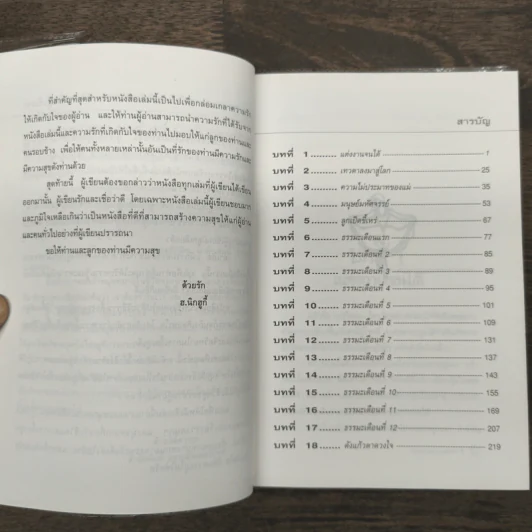 ที่สำคัญที่สุดสำหรับหนังสือเล่มนี้เป็นไปเพื่อกล่อมเกลาความรัก
ให้เกิดกับใจของผู้อ่าน และให้ท่านผู้อ่านสามารถนำความรักที่ได้รับจาก
หนังสือเล่มนี้และความรักที่เกิดกับใจของท่านไปมอบให้แก่ลูกของท่านและ
คนรอบข้าง เพื่อให้คนทั้งหลายเหล่านั้นอันเป็นที่รักของท่านมีความรักและ
มีความสุขดังท่านด้วย
สุดท้ายนี้ ผู้เขียนต้องขอกล่าวว่าหนังสือทุกเล่มที่ผู้เขียนได้เขียน
ออกมานั้น ผู้เขียนรักและเชื่อว่าดี โดยเฉพาะหนังสือเล่มนี้ผู้เขียนชอบมาก
และภูมิใจเหลือเกินว่าเป็นหนังสือที่ดีที่สามารถสร้างความสุขให้แก่ผู้อ่าน
และคนทั่วไปอย่างที่ผู้เขียนปรารถนา
ขอให้ท่านและลูกของท่านมีความสุข
ด้วยรัก
ฮ.นิกฮูกี้
สารบัญ
บทที่ 1 ........ แต่งงานจนได้ 1
บทที่ 2 ........ เทวดาลงมาสู่โลก 25
บทที่ 3 ........ ความไม่ประมาทของแม่ 35
บทที่ 4 ........ มนุษย์มหัศจรรย์ 53
บทที่ 5 ........ ลูกเป็ดขี้เหร่ 67
บทที่ 6 ........ ธรรมะเดือนแรก 77
บทที่ 7 ........ ธรรมะเดือนที่ 2 85
บทที่ 8 ........ ธรรมะเดือนที่ 3 89
บทที่ 9 ........ ธรรมะเดือนที่ 4 95
บทที่ 10 ....... ธรรมะเดือนที่ 5 101
บทที่ 11 ....... ธรรมะเดือนที่ 6 109
บทที่ 12 ....... ธรรมะเดือนที่ 7 131
บทที่ 13 ....... ธรรมะเดือนที่ 8 137
บทที่ 14 ....... ธรรมะเดือนที่ 9 143
บทที่ 15 ....... ธรรมะเดือนที่ 10 155
บทที่ 16 ....... ธรรมะเดือนที่ 11 169
บทที่ 17 ....... ธรรมะเดือนที่ 12 207
บทที่ 18 ....... ดังแก้วตาดวงใจ 219